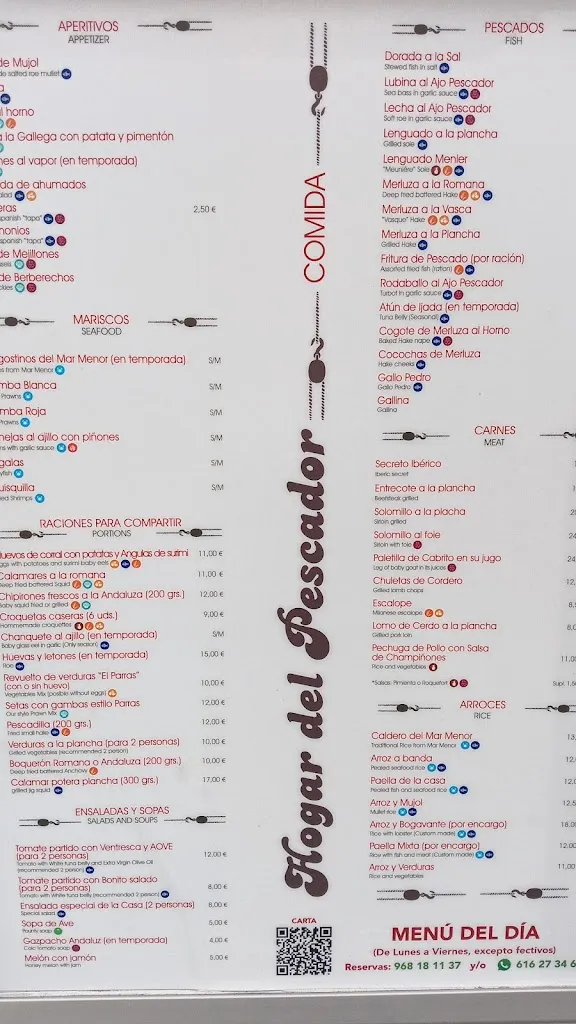 APERITIVOS
APPETIZER
de Mujol
de salted roe mullet
al horno
a la Gallega con patata y pimentón
nes al vapor (en temporada)
da de ahumados
alad
eras 2,50 €
spanish "tapa"
monios
spanish "tapa"
de Mejillones
ssels
de Berberechos
ckles
MARISCOS
SEAFOOD
gostinos del Mar Menor (en temporada) S/M
s from Mar Menor
mba Blanca S/M
Prawns
mba Roja S/M
Prawns
nejas al ajillo con piñones S/M
ms with garlic sauce
galas S/M
yfish
uisquilla S/M
ed Shrimps
RACIONES PARA COMPARTIR
PORTIONS
Huevos de corral con patatas y Angulas de surimi 11,00 €
ggs with potatoes and surimi baby eels
Calamares a la romana 11,00 €
Deep fried battered Squid
Chipirones frescos a la Andaluza (200 grs.) 12,00 €
Baby squid fried or grilled
Croquetas caseras (6 uds.) 9,00 €
Hommemade croquettes
Chanquete al ajillo (en temporada) S/M
Baby glass eel in garlic (Only season)
Huevas y letones (en temporada) 15,00 €
Roe
Revuelto de verduras "El Parras"
(con o sin huevo) 10,00 €
Vegetables Mix (posible without eggs)
Setas con gambas estilo Parras 12,00 €
Our style Prawn Mix
Pescadilla (200 grs.) 12,00 €
Fried small hake
Verduras a la plancha (para 2 personas) 10,00 €
Grilled vegetables (recommended 2 person)
Boquerón Romana o Andaluza (200 grs.) 10,00 €
Deep fried battered Anchovy
Calamar potera plancha (300 grs.) 17,00 €
grilled jig squid
ENSALADAS Y SOPAS
SALADS AND SOUPS
Tomate partido con Ventresca y AOVE
(para 2 personas) 12,00 €
Tomato with White tuna belly and Extra Virgin Olive Oil
(recommended 2 person)
Tomate partido con Bonito salado
(para 2 personas) 8,00 €
Tomato with White tuna belly (recommended 2 person)
Ensalada especial de la Casa (2 personas) 8,00 €
Special salad
Sopa de Ave 5,00 €
Poultry soup
Gazpacho Andaluz (en temporada) 4,00 €
Cold tomato soup
Melón con jamón 5,00 €
Honey melon with jam
COMIDA
Hogar del Pescador
CARTA
PESCADOS
FISH
Dorada a la Sal
Stewed fish in salt
Lubina al Ajo Pescador
Sea bass in garlic sauce
Lecha al Ajo Pescador
Soft roe in garlic sauce
Lenguado a la plancha
Grilled sole
Lenguado Menier
"Meunière" Sole
Merluza a la Romana
Deep fried battered Hake
Merluza a la Vasca
"Vasque" Hake
Merluza a la Plancha
Grilled Hake
Fritura de Pescado (por ración)
Assorted fried fish (ration)
Rodaballo al Ajo Pescador
Turbot in garlic sauce
Atún de Ijada (en temporada)
Tuna Belly (Seasonal)
Cogote de Merluza al Horno
Baked Hake nape
Cocochas de Merluza
Hake cheeks
Gallo Pedro
Gallo Pedro
Gallina
Gallina
CARNES
MEAT
Secreto Ibérico
Iberic secret
Entrecote a la plancha
Beefsteak grilled
Solomillo a la placha 20
Sirloin grilled
Solomillo al foie 24
Sirloin with foie
Paletilla de Cabrito en su jugo 24
Leg of baby goat in its juices
Chuletas de Cordero 12,
Grilled lamb chops
Escalope 8,
Milanese escalope
Lomo de Cerdo a la plancha 8,0
Grilled pork loin
Pechuga de Pollo con Salsa
de Champiñones 11,0
Rice and vegetables
*Salsas: Pimienta o Roquefort Supl. 1,5
ARROCES
RICE
Caldero del Mar Menor 13,
Traditional Rice from Mar Menor
Arroz a banda 12,
Pealed seafood rice
Paella de la casa 12,
Pealed fish and seafood rice
Arroz y Mujol 12,5
Mullet rice
Arroz y Bogavante (por encargo) 18,0
Rice with lobster (Custom made)
Paella Mixta (por encargo) 12,00
Rice with fish and meat (Custom made)
Arroz y Verduras 11,00
Rice and vegetables
MENÚ DEL DÍA
(De Lunes a Viernes, excepto festivos)
Reservas: 968 18 11 37 y/o 616 27 34 6